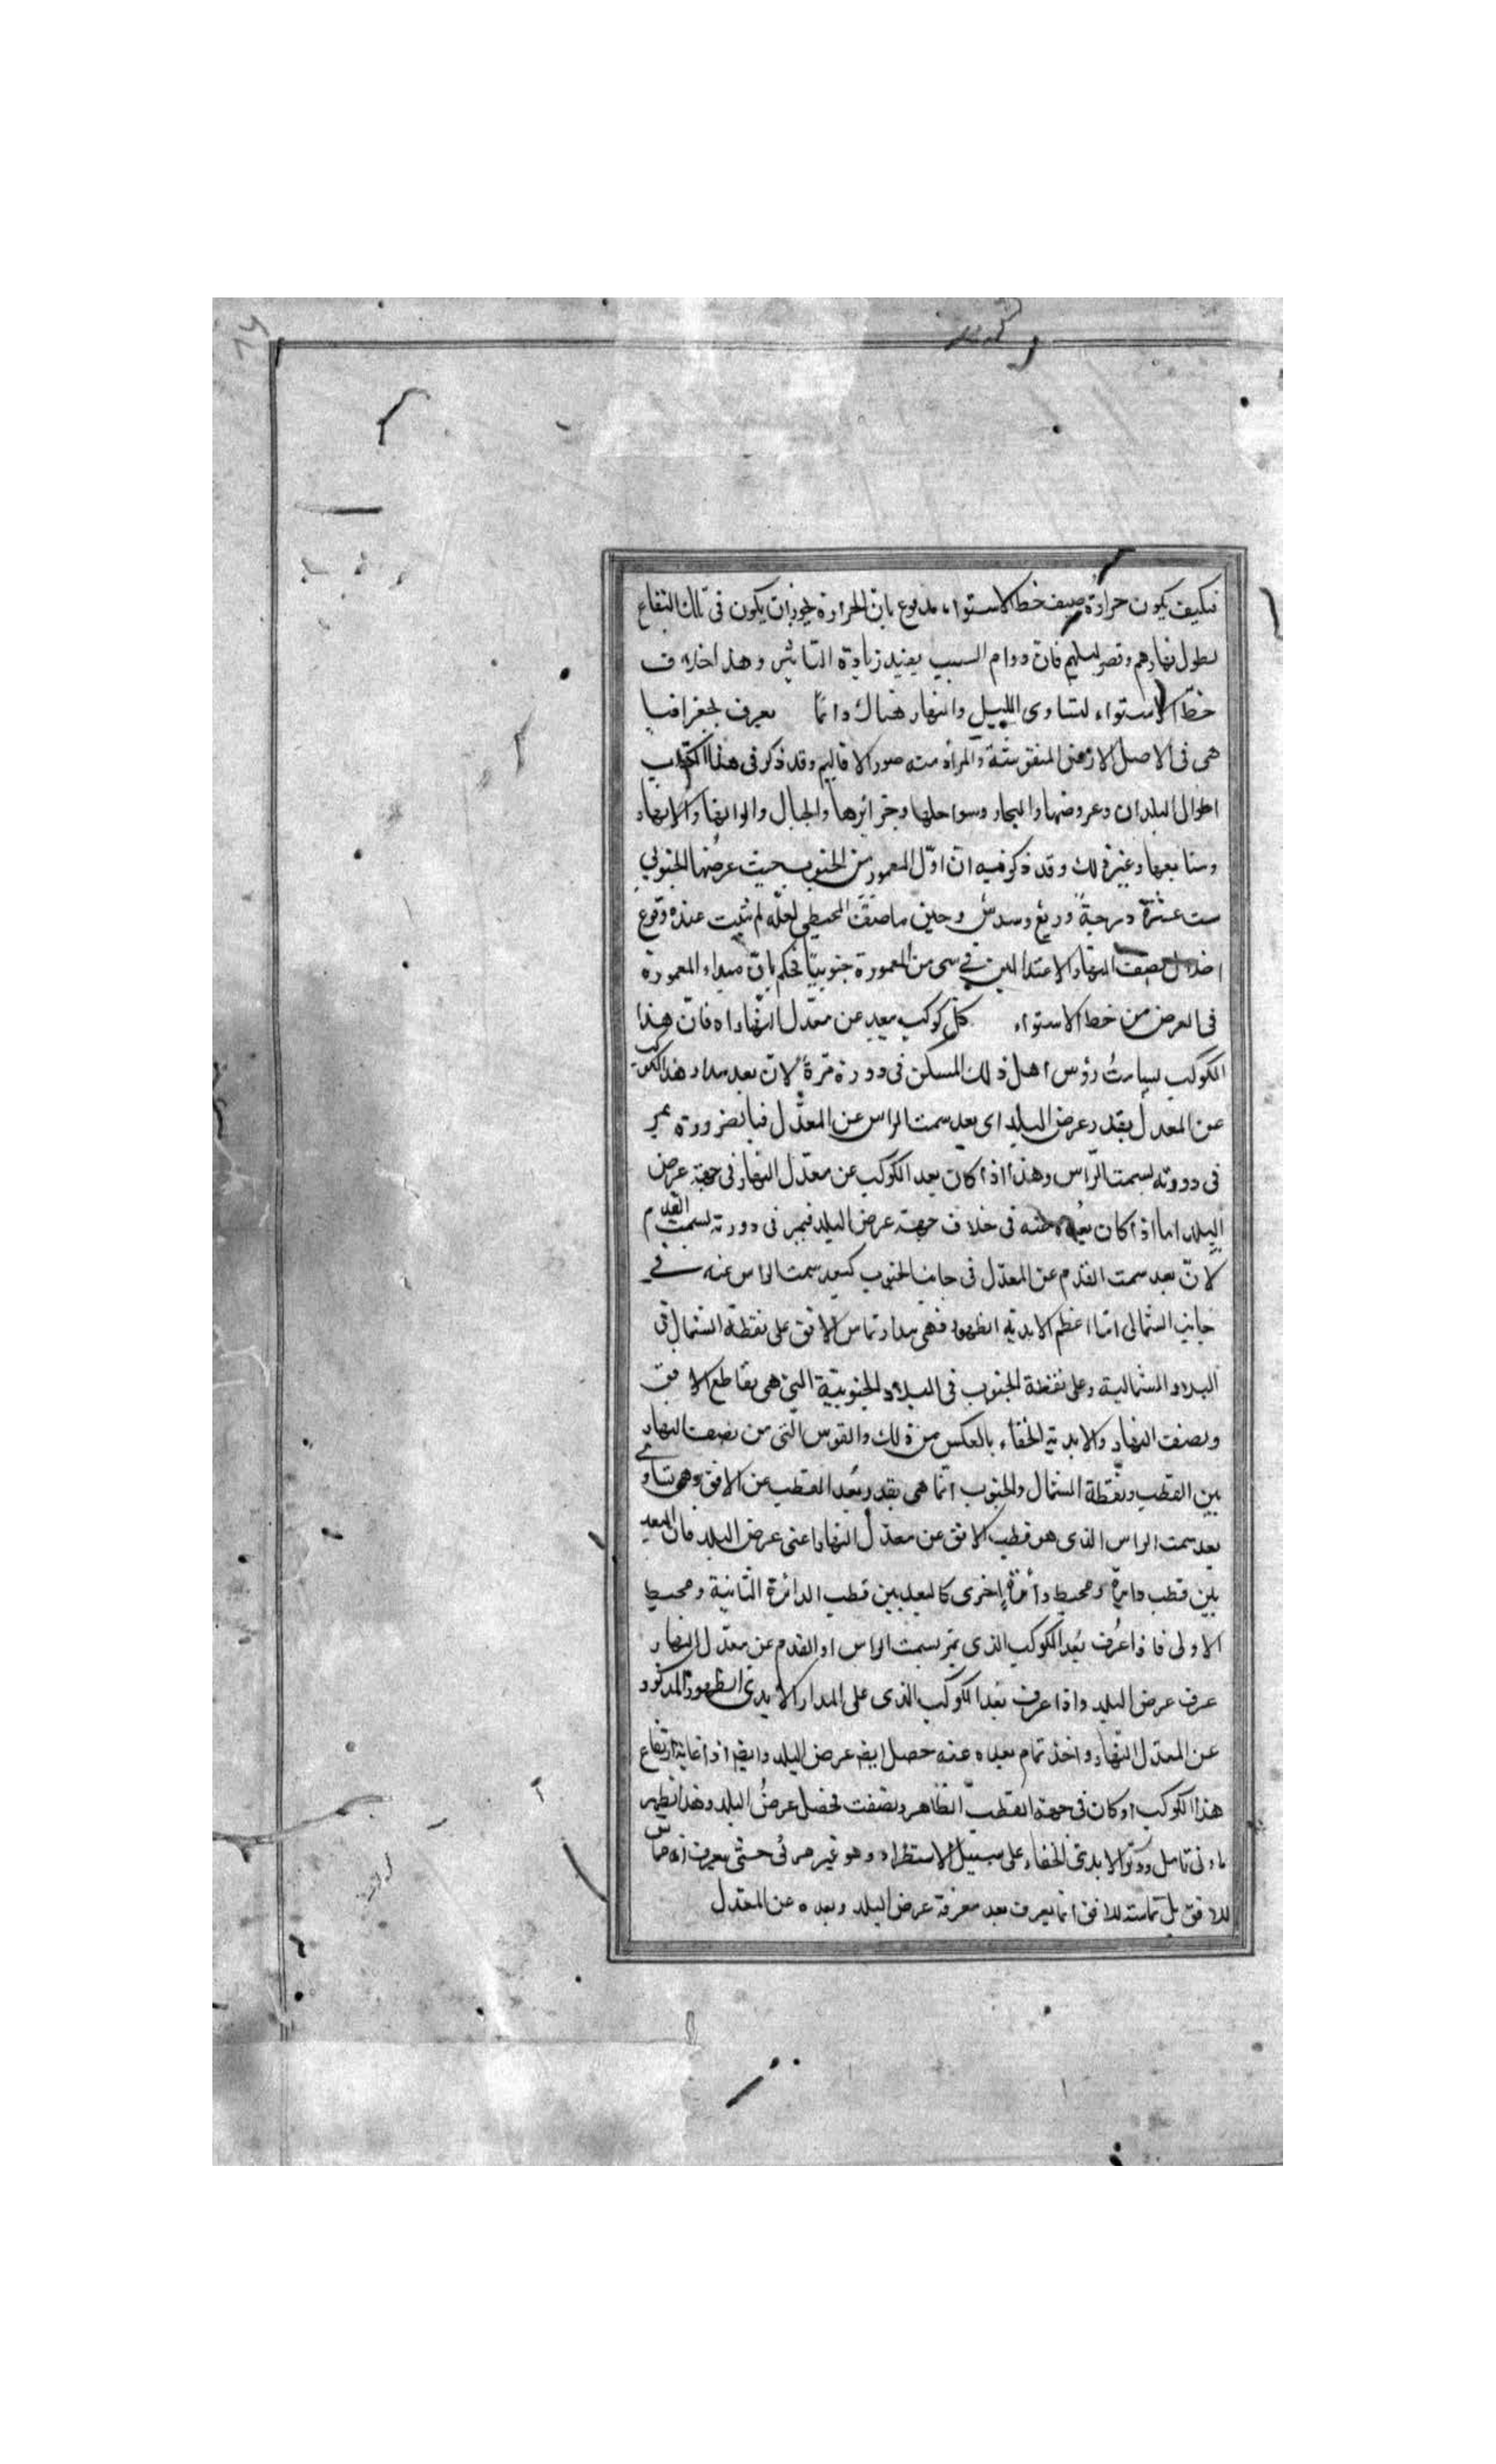 فكيف يكون حرارة صيف خط الاستواء مدفوع بان الحرارة يجوز ان يكون فى تلك البقاع
لطول نهارهم وقصر ليلهم فان دوام السبب يفيد زيادة التاثير وهذا خلاف
خطّ الاستواء لتساوى الليل والنهار هناك دائما يعرف بجغرافيا
هى فى الاصل الارض المنقوشة والمراد منه صور الاقاليم وقد ذكر فى هذا الكتاب
اطوال البلدان وعروضها والبحار وسواحلها وجزائرها والجبال والوانها والانهار
ومنابعها وغير ذلك وقد ذكر فيه ان اوّل المعمور من الجنوب حيث عرضها الجنوبى
ست عشرة درجة وربع وسدس وحين ما صنّف المجسطى لعلّه لم يثبت عنده وقوع
نصف النهار الاعتدالين فى شى من المعمورة جنوبيّا فحكم بانّ مبداء المعمورة
فى العرض من خط الاستواء كلّ كوكب بعيد عن معدّل النهار اه فانّ هذا
الكوكب يسامت رؤس اهل ذلك المسكن فى دورة مرّة لانّ بعد مدار هذا الكوكب
عن المعدل بقدر عرض البلد اى بعد سمت الراس عن المعدّل فبالضرورة يمر
فى دورته بسمت الرّاس وهذا اذا كان بعد الكوكب عن معدّل النهار فى جهة عرض
البلد اما اذا كان بعده عنه فى خلاف جهة عرض البلد فيمر فى دورته بسمت القدم
لانّ بعد سمت القدم عن المعدّل فى جانب الجنوب كبعد سمت الراس عنه فى
جانب الشمالى امّا اعظم الابدية الظهور فهى مدار تماس الافق على نقطة الشمال فى
البلاد الشمالية وعلى نقطة الجنوب فى البلاد الجنوبيّة التى هى تقاطع الافق
ونصف النهار والابدية الخفاء بالعكس من ذلك والقوس الّتى من نصف النهار
بين القطب ونقطة الشمال والجنوب انّما هى بقدر بُعد القطب عن الافق وهى تساوى
بعد سمت الراس الذى هو قطب الافق عن معدّل النهار اعنى عرض البلد فان البعد
بين قطب دايرة ومحيط دائرة اخرى كالبعد بين قطب الدائرة الثانية ومحيط
الاولى فاذا عُرف بُعد الكوكب الذى يمرّ بسمت الراس او القدم عن معدّل النهار
عرف عرض البلد واذا عرف بُعد الكوكب الذى على المدار الابدى الظهور المذكور
عن المعدّل النهار واخذ تمام بعده عنه حصل ايضا عرض البلد وايضا اذا غاية ارتفاع
هذا الكوكب او كان فى جهة القطب الظاهر ونصفت فحصل عرضُ البلد وهذا يظهر
بادنى تامل وذكر الابدى الخفاء على سبيل الاستطراد وهو غير مرئى حتّى يعرف انه مماس
للافق بل تماسه للافق انما يعرف بعد معرفة عرض البلد وبعده عن المعدّل